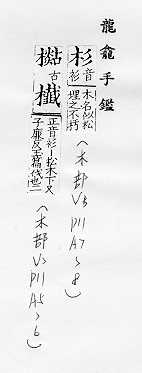 龍龕手鑑
杉音彡木名似松埋之不朽
(木部 V3 P11 A7>8)
㯰古
櫼正音彡—杉木下又子廉反玉篇伐也二
(木部 V3 P11 A5>6)